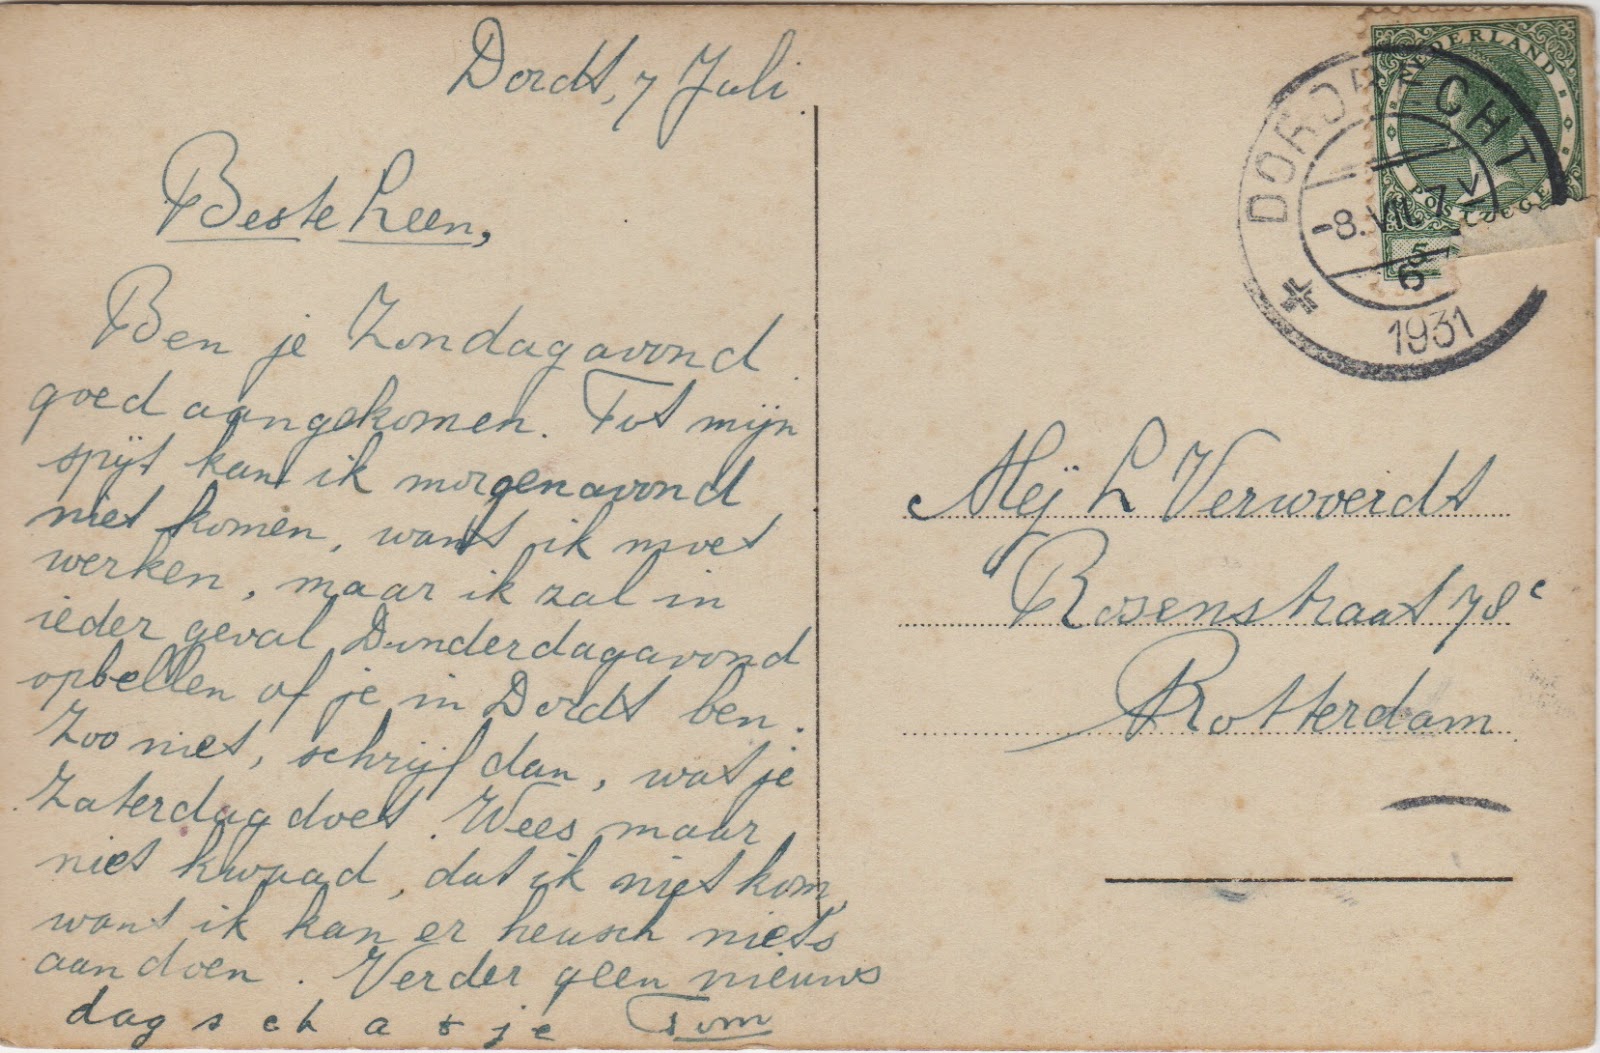 Dordt, 7 Juli.
Beste Leen,
Ben je Zondagavond
goed aangekomen. Tot mijn
spijt kan ik morgenavond
niet komen, want ik moet
werken, maar ik zal in
ieder geval Donderdagavond
opbellen of je in Dordt ben.
Zoo niet, schrijf dan, wat je
Zaterdag doet. Wees maar
niet kwaad, dat ik niet kom,
want ik kan er heusch niets
aan doen. Verder geen nieuws
dag schatje Tom
NEDERLAND
POSTZEGEL
5
DORDRECHT
-8.VII.7V
6
1931
Mej L Verwoerdt
Rosenstraat 78c
Rotterdam